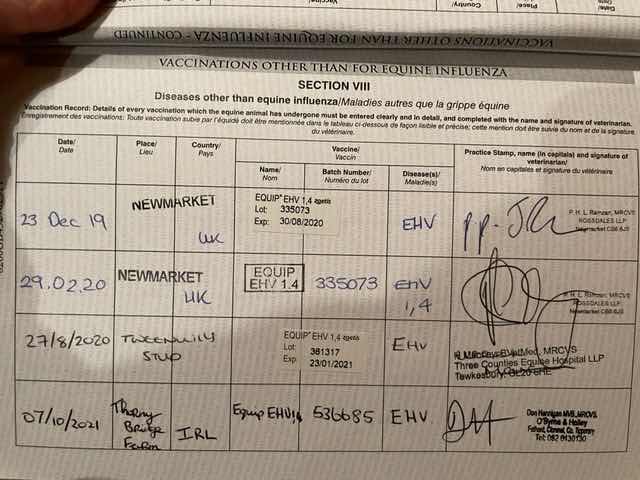 Country/
Place/
Date/
VACCINATIONS OTHER THAN FOR EQUINE INFLUENZA - CONTINUED
VACCINATIONS OTHER THAN FOR EQUINE INFLUENZA
SECTION VIII
Diseases other than equine influenza/Maladies autres que la grippe équine
Vaccination Record: Details of every vaccination which the equine animal has undergone must be entered clearly and in detail, and completed with the name and signature of veterinarian.
Enregistrement des vaccinations: Toute vaccination subie par l'équidé doit être mentionnée dans le tableau ci-dessous de façon lisible et précise; cette mention doit être suivie du nom et de la signature
du vétérinaire.
Date/
Date
Place/
Lieu
Country/
Pays
Vaccine/
Vaccin
Name/
Nom
Batch Number/
Numéro du lot
Disease(s)/
Maladie(s)
Practice Stamp, name (in capitals) and signature of
veterinarian/
Nom en capitales et signature du vétérinaire
23 Dec 19
NEWMARKET
UK
EQUIP® EHV 1,4 zoetis
Lot: 335073
Exp: 30/08/2020
EHV
pp.
P. H. L. Ramzan, MRCVS
ROSSDALES LLP
Newmarket CB8 6JS
29.02.20
NEWMARKET
UK
EQUIP
EHV 1.4
335073
EHV
1,4
P. H. L. Ramzan, MRCVS
ROSSDALES LLP
Newmarket CB8 6JS
27/8/2020
STUD
EQUIP® EHV 1,4 zoetis
Lot: 381317
Exp: 23/01/2021
EHV
BVetMed, MRCVS
Three Counties Equine Hospital LLP
Tewkesbury, GL20 6HE
07/10/2021
Thorny
Bridge
Farm
IRL
Equip EHV1,4
536685
EHV
Don Hannigan MVB, MRCVS.
O'Byrne & Halley
Fethard, Clonmel, Co. Tipperary
Tel: 052 6130130